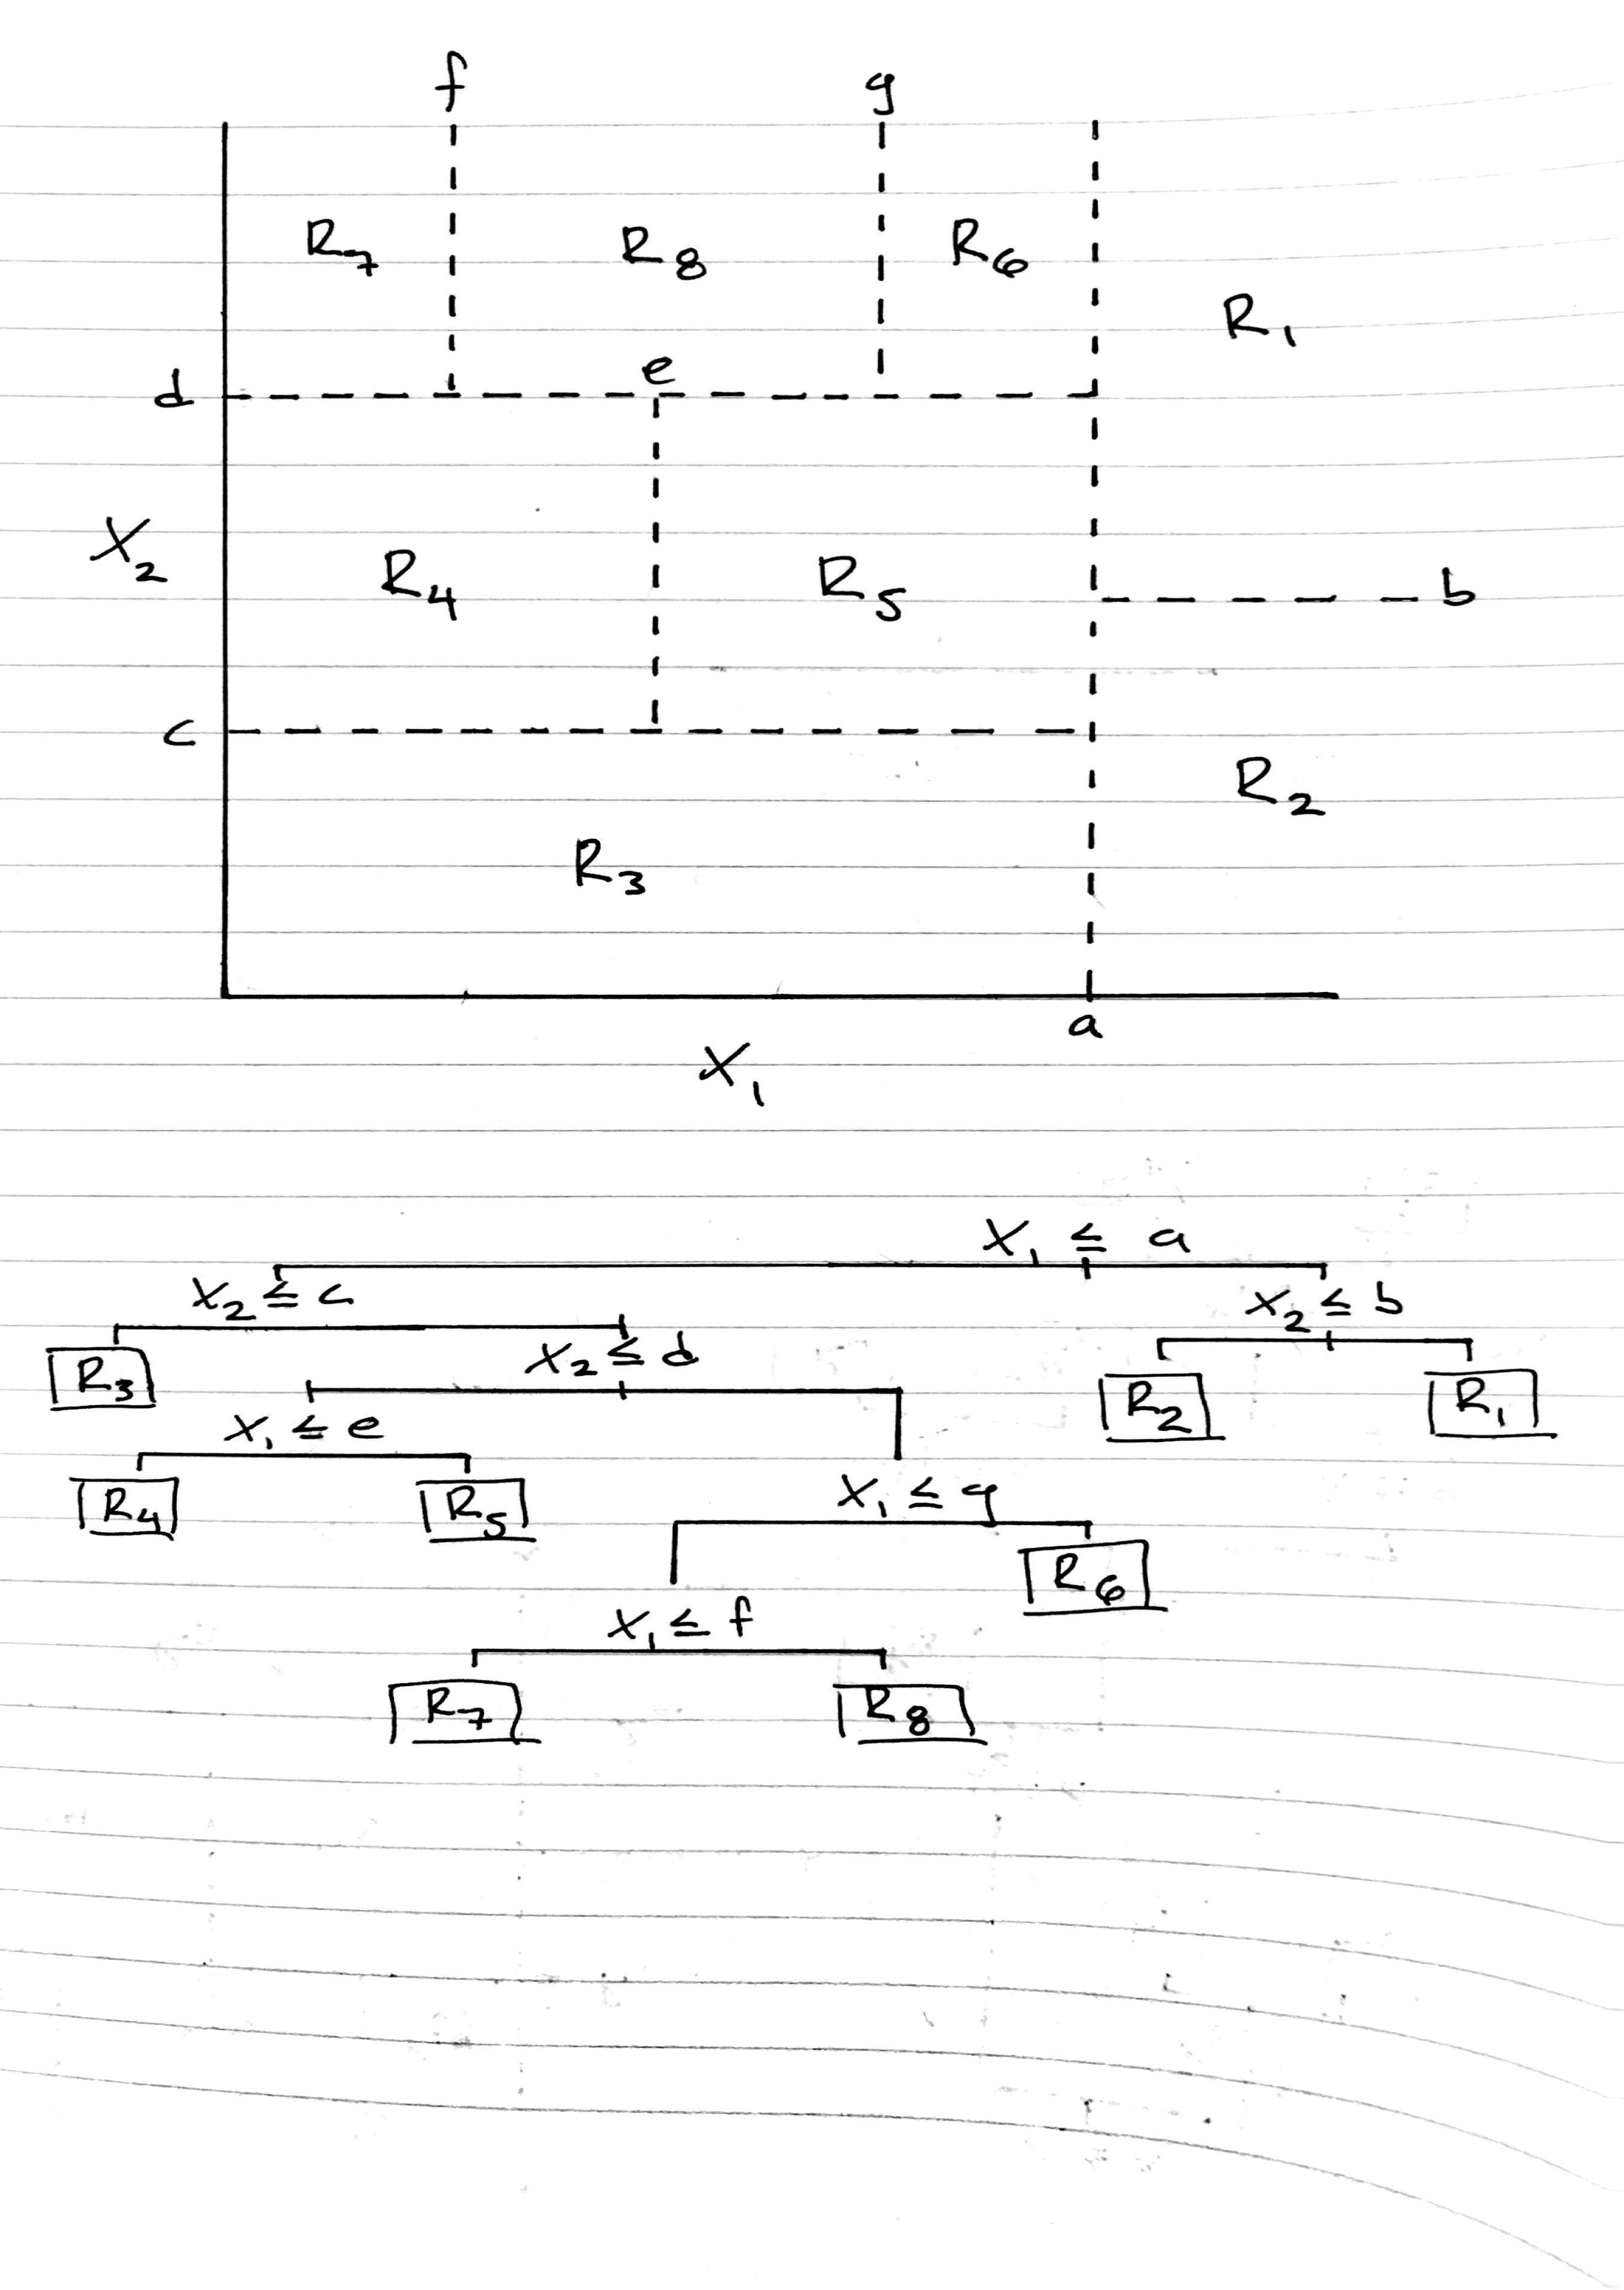 f g
R7 R8 R6
R1
e
d
X2
R4 R5
b
c
R2
R3
a
X1
X1 ≤ a
X2 ≤ c X2 ≤ b
R3 X2 ≤ d R2 R1
X1 ≤ e
R4 R5 X1 ≤ g
R6
X1 ≤ f
R7 R8